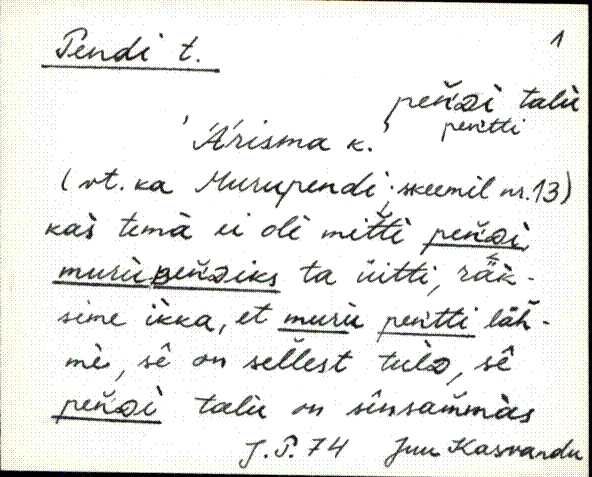 Pendi t. 1
pen̆ᴅi talu
pentti
'Ärisma k.'
(vt. ka Murupendi; skeemil nr. 13)
kas temä ei olì mit̆ti pen̆ᴅi,
murùpen̆ᴅiks ta üitti, rǟk-
sime ikka, et murù pentti läh-
mè, sê on sel̆lest tulᴅ, sê
pen̆ᴅi talù on sinsam̆mas
J. P. 74 Juu Kasvandu